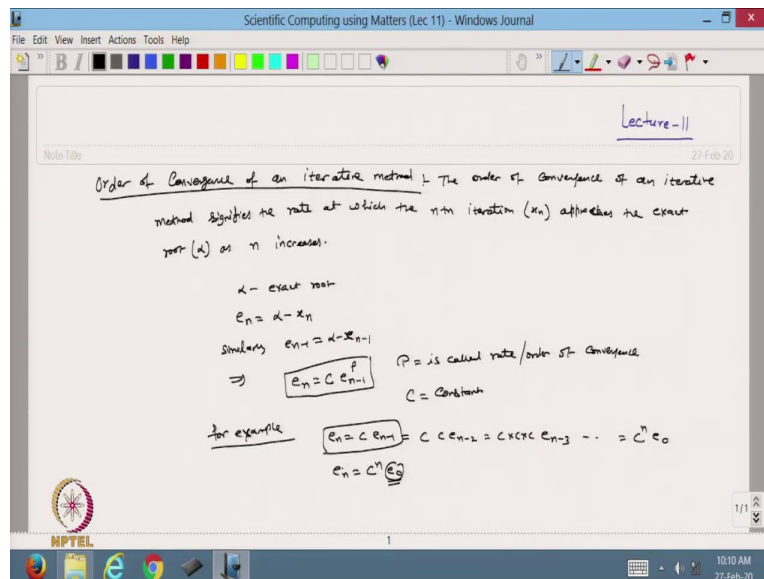 Scientific Computing using Matters (Lec 11) - Windows Journal
File Edit View Insert Actions Tools Help
B I
Lecture-11
Note Title
27-Feb-20
Order of Convergence of an iterative method :- The order of convergence of an iterative
method signifies the rate at which the nth iteration (xn) approaches the exact
root (α) as n increases.
α - exact root
e_n = α - x_n
Similarly e_{n-1} = α - x_{n-1}
⇒ e_n = C e_{n-1}^p P = is called rate/order of convergence
C = Constant
for example e_n = C e_{n-1} = C C e_{n-2} = C×C×C e_{n-3} - - = C^n e_0
e_n = C^n e_0
NPTEL
1
1/1
10:10 AM
27-Feb-20